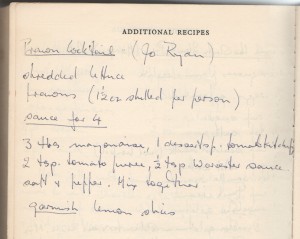 ADDITIONAL RECIPES
Prawn Cocktail (Jo Ryan)
shredded lettuce
Prawns (1½oz shelled per person)
sauce for 4
3 tbs mayonnaise, 1 dessertsp. tomato ketchup
2 tsp. tomato puree, ½ tsp Worcester sauce
salt & pepper. Mix together
garnish lemon slices